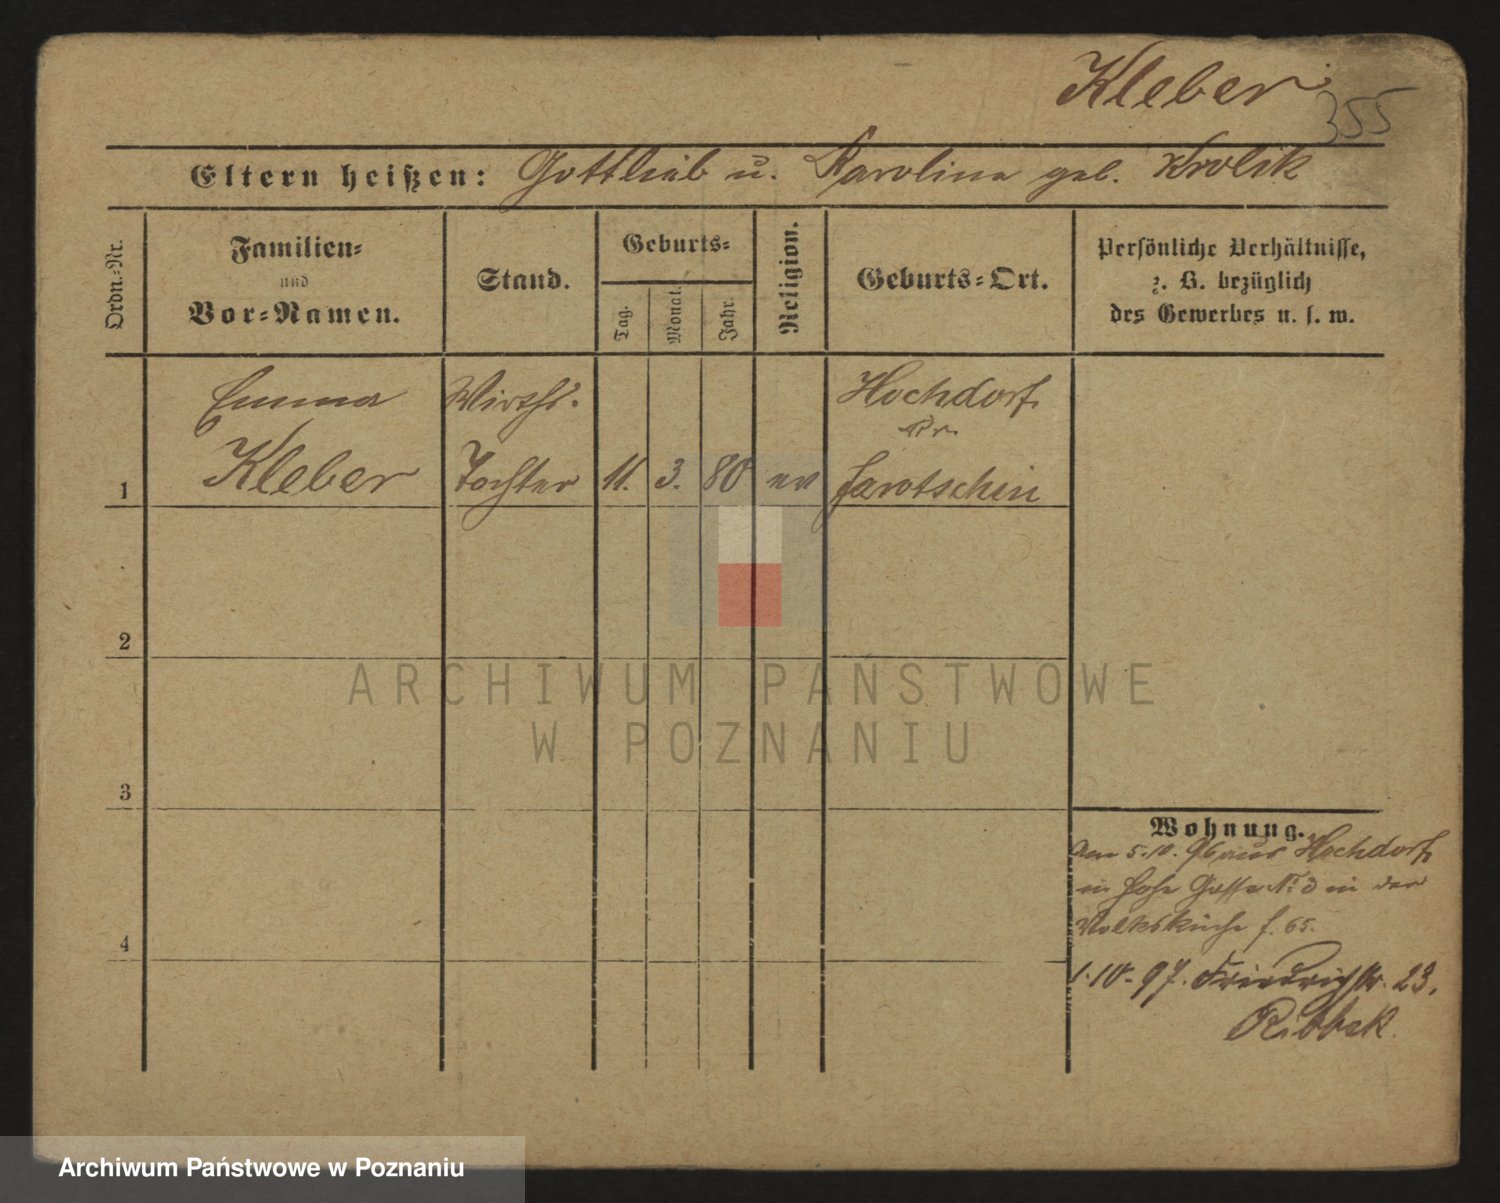 Kleber
355
Eltern heißen: Gottlieb u. Karolina geb. Krolik
Ordn.-Nr.
Familien-
und
Vor-Namen.
Stand.
Geburts-
Tag.
Monat.
Jahr.
Religion.
Geburts-Ort.
Persönliche Verhältnisse,
z. B. bezüglich
des Gewerbes u. s. w.
Emma Wirths- Hochdorf
Kr.
1 Kleber Tochter 11. 3. 80 ev Jarotschin
2
3
4
Wohnung.
Am 5.10.96 aus Hochdorf
in hohe Gasse No 3 in der
Volksküche f. 65.
1.10.97. Friedrichstr. 23.
Ribbek
ARCHIWUM PAŃSTWOWE
W POZNANIU
Archiwum Państwowe w Poznaniu